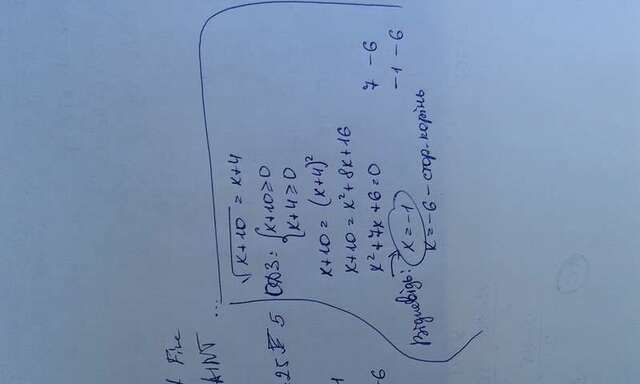 Fire
AINT ...
√x+10 = x+4
.25 5 ОДЗ: {x+10≥0
x+4≥0
x+10 = (x+4)²
x+10 = x²+8x+16
x²+7x+6=0 7 -6
-6 Відповідь: x=-1 -1 -6
x=-6 - стор. корінь